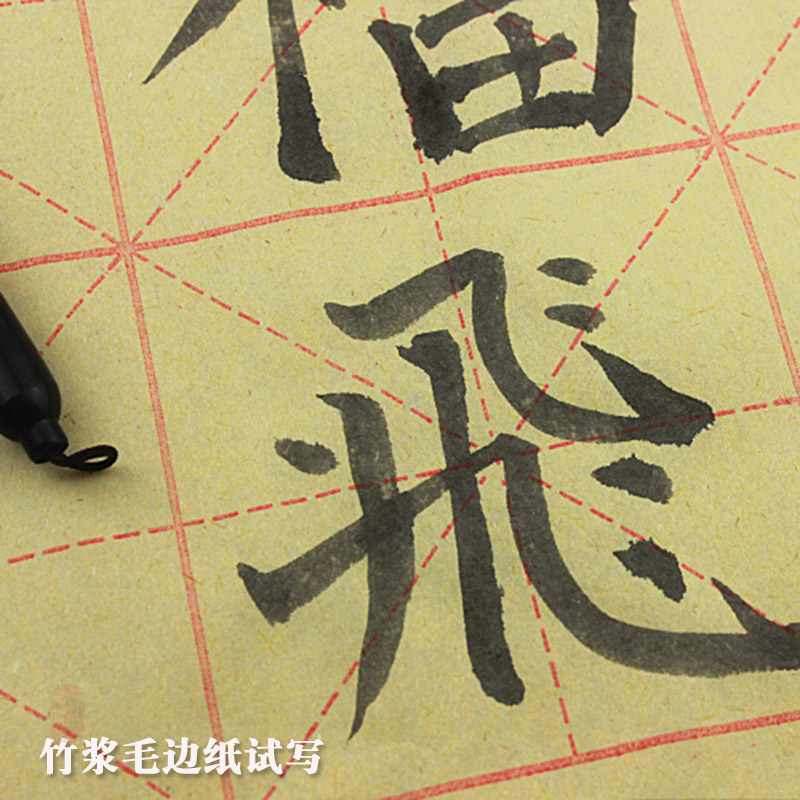 飛
竹浆毛边纸试写